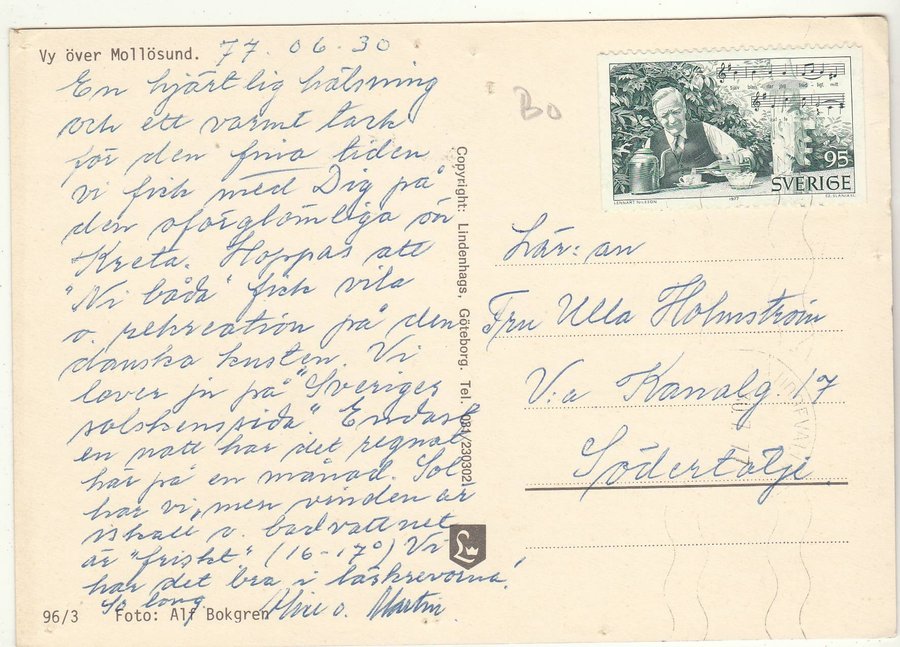 Vy över Mollösund.
77.06.30
En hjärtlig hälsning
och ett varmt tack
för den fina tiden
vi fick med Dig på
den oförglömliga ön
Kreta. Hoppas att
"Ni båda" fick vila
o. rekreation på den
danska kusten. Vi
lever ju på "Sveriges
solskenssida" Endast
en natt har det regnat
här på en månad. Sol
har vi, men vinden är
iskall o. badvattnet
är "friskt." (16-17°) Vi
har det bra i
So long
o. Martin
96/3 Foto: Alf Bokgren
Copyright: Lindenhags, Göteborg. Tel. 031/230302
L
Bo
95
SVERIGE
LENNART NILSSON
1977
Lär:an
Fru Ulla Holmström
V:a Kanalg. 17
Södertälje